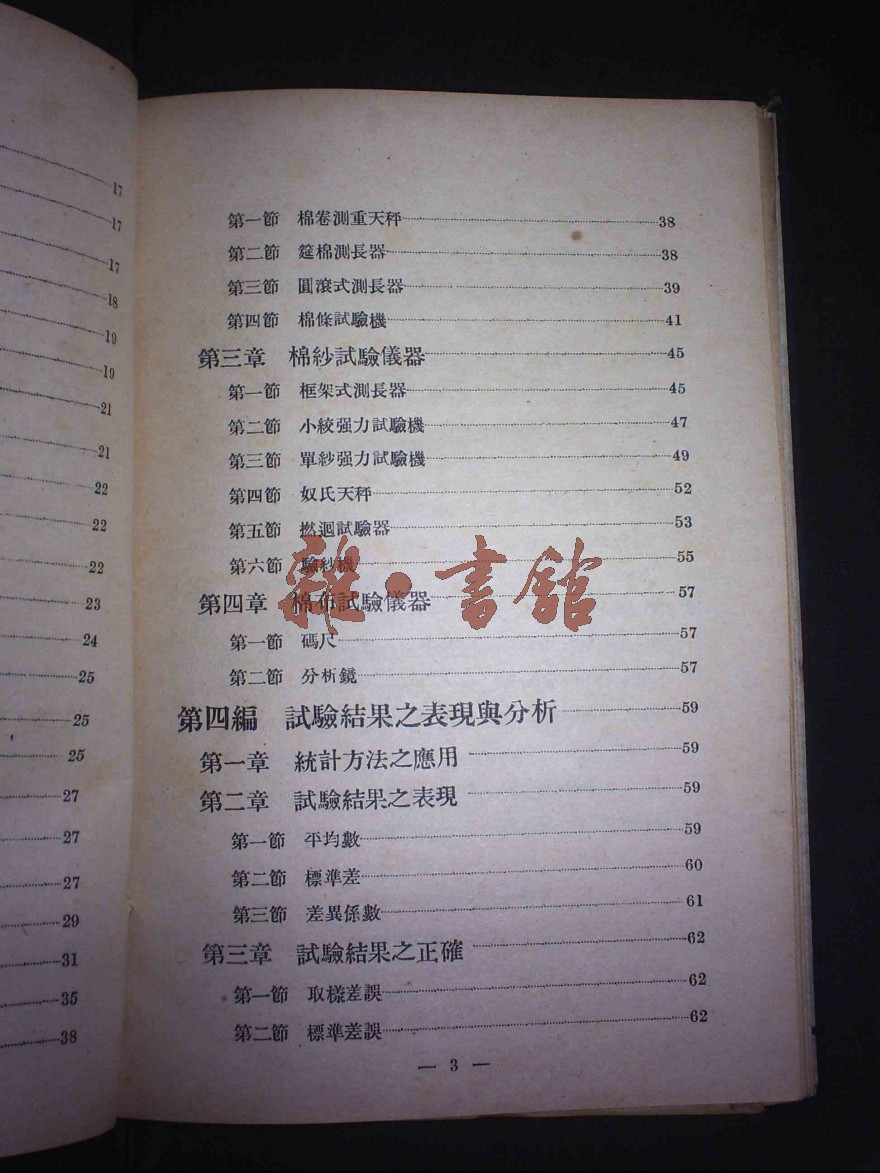 17
17
17
18
19
19
21
21
22
22
22
23
24
25
25
25
27
27
27
29
31
35
38
第一節 棉卷測重天秤 38
第二節 筵棉測長器 38
第三節 圓滾式測長器 39
第四節 棉條試驗機 41
第三章 棉紗試驗儀器 45
第一節 框架式測長器 45
第二節 小絞强力試驗機 47
第三節 單紗强力試驗機 49
第四節 奴氏天秤 52
第五節 撚迴試驗器 53
第六節 驗紗機 55
第四章 棉布試驗儀器 57
第一節 碼尺 57
第二節 分析鏡 57
第四編 試驗結果之表現與分析 59
第一章 統計方法之應用 59
第二章 試驗結果之表現 59
第一節 平均數 59
第二節 標準差 60
第三節 差異係數 61
第三章 試驗結果之正確 62
第一節 取樣差誤 62
第二節 標準差誤 62
— 3 —
雜·書館